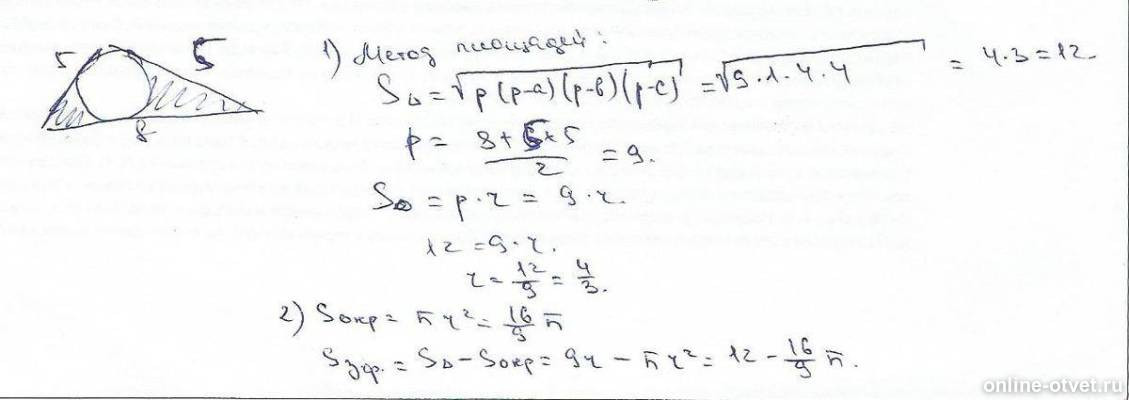 5 5
8
1) Метод площадей:
S△ = √p(p-a)(p-b)(p-c) = √9·1·4·4 = 4·3 = 12.
p = 8+5+5 / 2 = 9.
S△ = p·r = 9·r.
12 = 9·r.
r = 12/9 = 4/3.
2) Sокр = πr² = 16/9 π
Sзф. = S△ - Sокр = 9r - πr² = 12 - 16/9 π.
online-otvet.ru